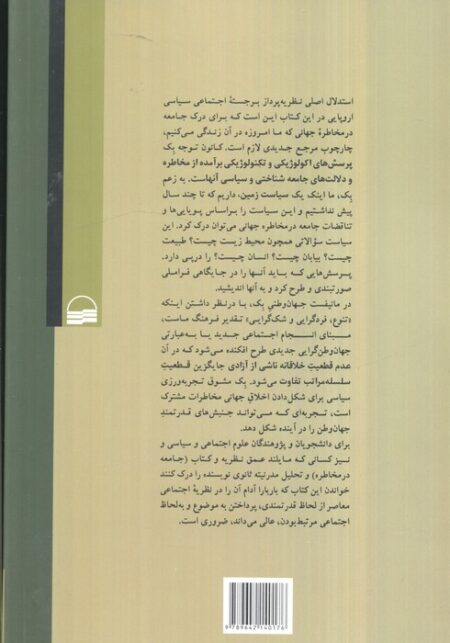 استدلال اصلی نظریه‌پرداز برجستهٔ اجتماعی سیاسی
اروپایی در این کتاب این است که برای درک جامعه
درمخاطرهٔ جهانی که ما امروزه در آن زندگی می‌کنیم،
چارچوب مرجع جدیدی لازم است. کانون توجه بِک
پرسش‌های اکولوژیکی و تکنولوژیکی برآمده از مخاطره
و دلالت‌های جامعه شناختی و سیاسی آنهاست. به زعم
بِک، ما اینک یک سیاست زمین، داریم که تا چند سال
پیش نداشتیم و این سیاست را براساس پویایی‌ها و
تناقضات جامعه درمخاطره جهانی می‌توان درک کرد. این
سیاست سؤالاتی همچون محیط زیست چیست؟ طبیعت
چیست؟ بیابان چیست؟ انسان چیست؟ را درپی دارد.
پرسش‌هایی که باید آنها را در جایگاهی فراملی
صورتبندی و طرح کرد و به آنها اندیشید.
در مانیفست جهان‌وطنیِ بِک، با درنظر داشتن اینکه
«تنوع، فردگرایی و شک‌گرایی» تقدیر فرهنگ ماست،
مبنای انسجام اجتماعی جدید یا به‌عبارتی
جهان‌وطن‌گرایی جدیدی طرح افکنده می‌شود که در آن
عدم قطعیتِ خلاقانه ناشی از آزادی جایگزین قطعیتِ
سلسله‌مراتب تفاوت می‌شود. بِک مشوق تجربه‌ورزی
سیاسی برای شکل‌دادن اخلاقِ جهانی مخاطرات مشترک
است، تجربه‌ای که می‌تواند جنبش‌های قدرتمندِ
جهان‌وطن را در آینده شکل دهد.
برای دانشجویان و پژوهندگان علوم اجتماعی و سیاسی و
نیز کسانی که مایلند عمق نظریه و کتاب (جامعه
درمخاطره) و تحلیل مدرنیته ثانوی نویسنده را درک کنند
خواندن این کتاب که باربارا آدام آن را در نظریهٔ اجتماعی
معاصر از لحاظ قدرتمندی، پرداختن به موضوع و به‌لحاظ
اجتماعی مرتبط‌بودن، عالی می‌داند، ضروری است.
9 789642 140176